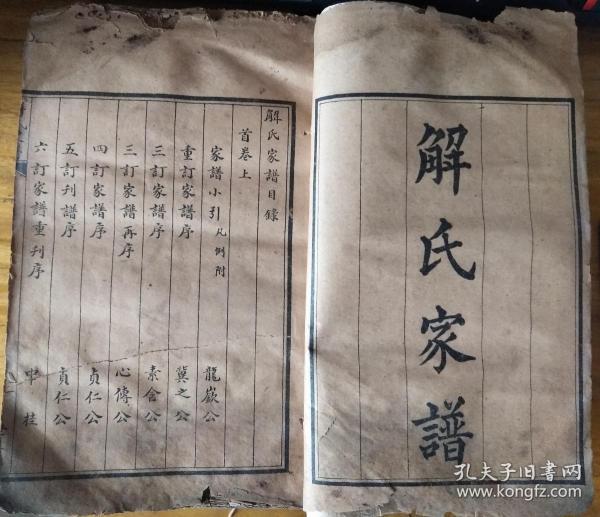 解氏家譜
解氏家譜目錄
首卷上
家譜小引凡例附 龍嶽公
重訂家譜序 冀之公
三訂家譜序 素含公
三訂家譜再序 心傳公
四訂家譜序 貞仁公
五訂刊譜序 貞仁公
六訂家譜重刊序 中桂
孔夫子旧书网
www.kongfz.com